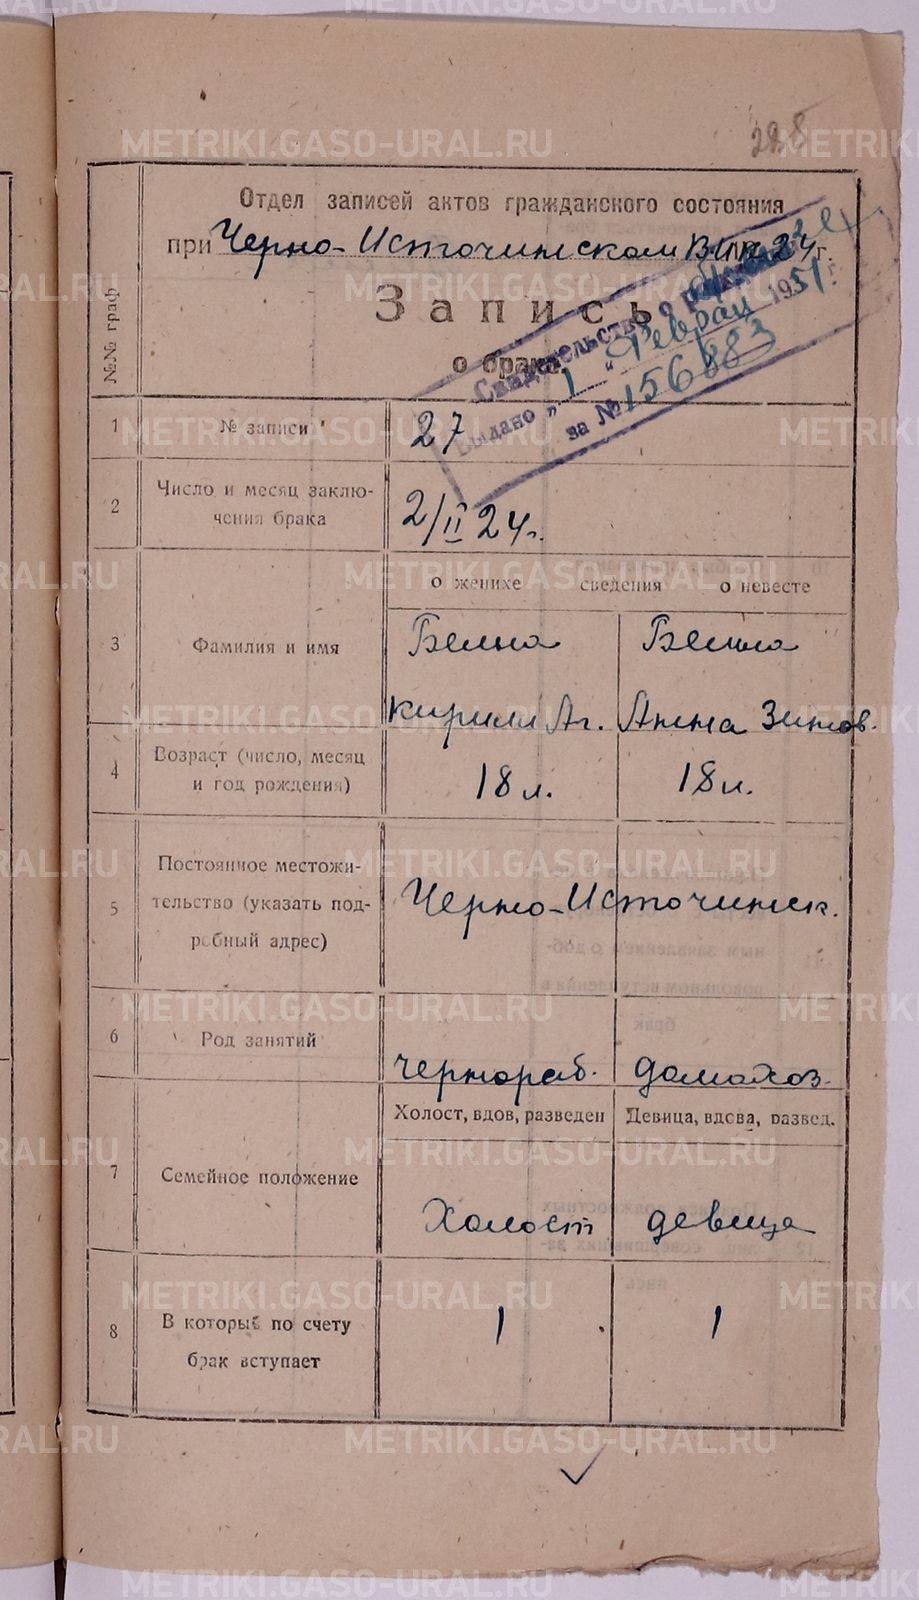 228
Отдел записей актов гражданского состояния
при Черно-Источинском ВИК 24 г.
№№ граф
Запись
о браке
Свидетельство о
Выдано „1“ Феврал 1951 г.
за № 156883
1 № записи 27
2 Число и месяц заклю-
чения брака
2/II 24 г.
о женихе сведения о невесте
3 Фамилия и имя
Белна Белна
Кирилл Аг. Анна Зинов.
4 Возраст (число, месяц
и год рождения)
18 л. 18 л.
5 Постоянное местожи-
тельство (указать под-
робный адрес)
Черно-Источинск.
6 Род занятий
чернораб. домохоз.
Холост, вдов, разведен Девица, вдова, развед.
7 Семейное положение
Холост девица
8 В который по счету
брак вступает
1 1
METRIKI.GASO-URAL.RU